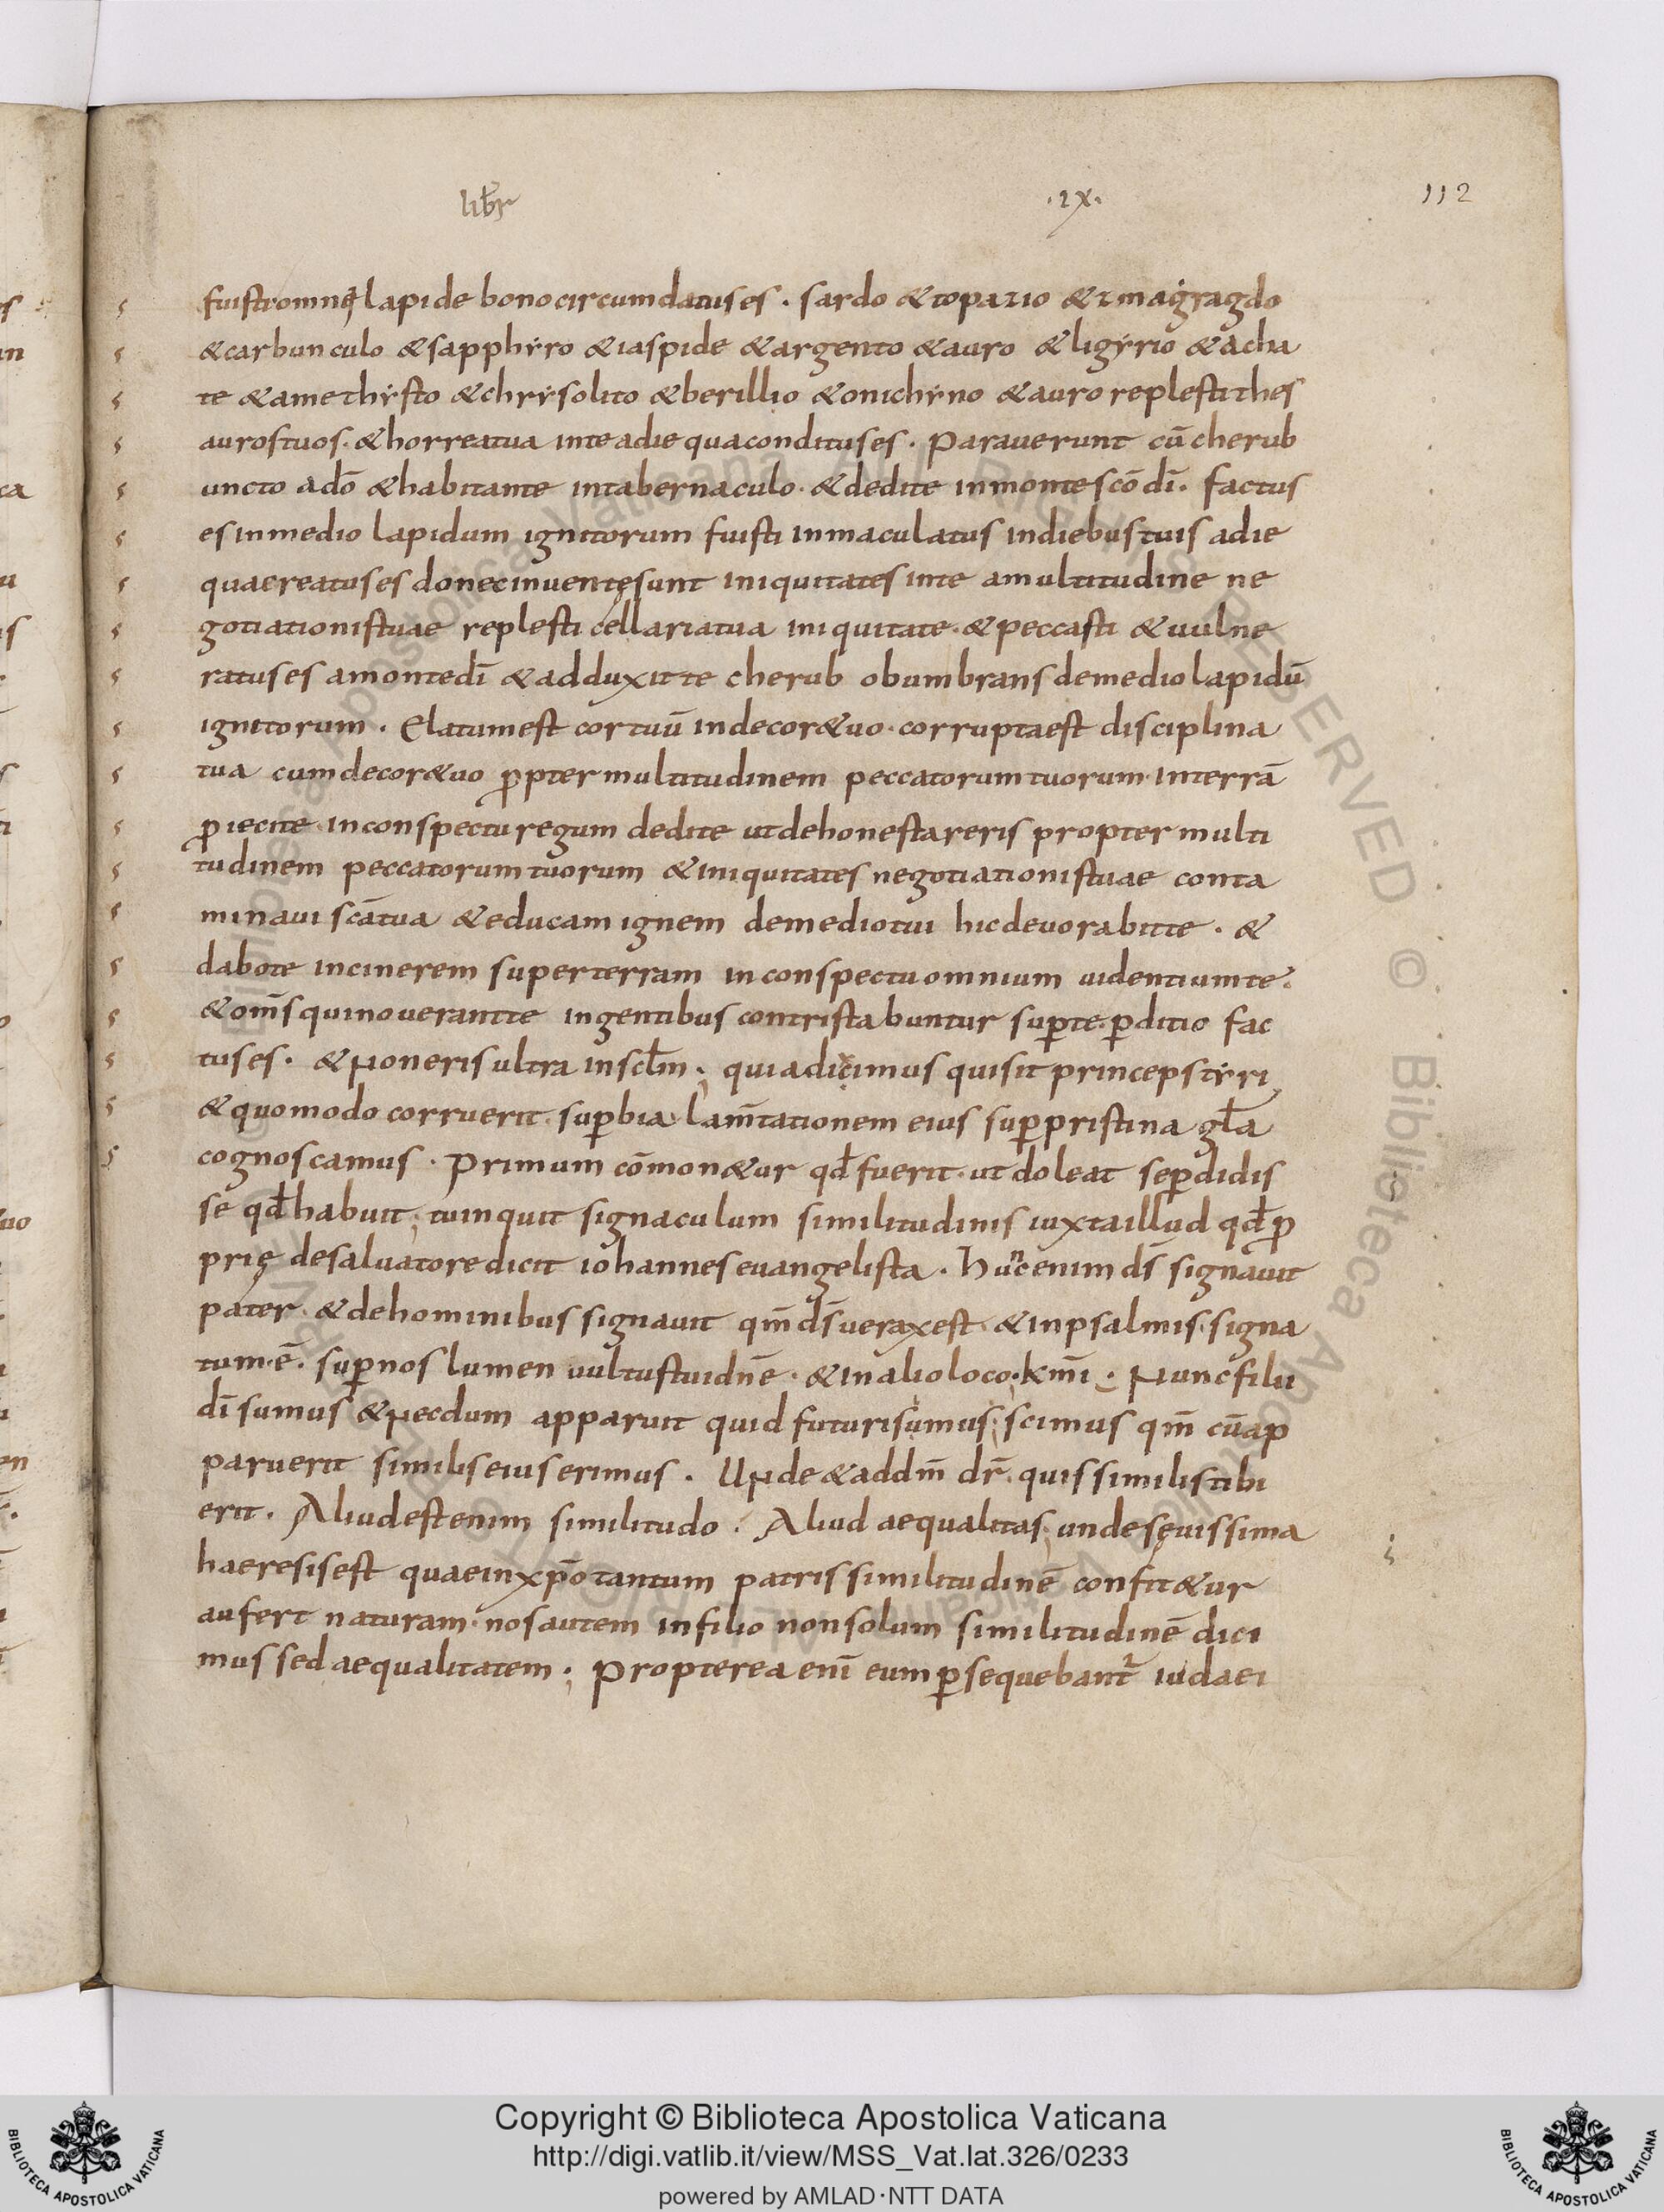 libr̄ .ix. 112
fuisti omnę lapide bono circumdatus es . sardo & topazio & zmagragdo
& carbunculo & sapphẏro & iaspide & argento & auro & ligẏrio & acha
te & amethẏsto & chrẏsolito & berillio & onichẏno & auro replesti thes
auros tuos . & horrea tua in te a die qua conditus es . Paraverunt cū cherub
uncto a dō & habitante in tabernaculo . & dedi te in monte scō dī . factus
es in medio lapidum ignitorum fuisti inmaculatus in diebus tuis a die
qua creatus es donec inventę sunt iniquitates in te a multitudine ne
gotiationis tuae replesti cellaria tua iniquitate . & peccasti & vulne
ratus es a monte dī & adduxit te cherub obumbrans de medio lapidū
ignitorum . Elatum est cor tuū in decore tuo . corrupta est disciplina
tua cum decore tuo ꝓpter multitudinem peccatorum tuorum . in terrā
ꝓieci te . in conspectu regum dedi te ut dehonestareris propter multi
tudinem peccatorum tuorum & iniquitates negotiationis tuae conta
minavi scā tua & educam ignem de medio tui hic devorabit te . &
dabo te in cinerem super terram in conspectu omnium videntium te .
& om̄s qui noverant te in gentibus contristabuntur suꝑ te . ꝑditio fac
tus es . & non eris ultra in sclm̄ ; quia dicimus qui sit princeps tẏri
& quomodo corruerit suꝑbia lam̄tationem eius suꝑ pristina gl̄a
cognoscamus . Primum cōmon&ur qđ fuerit . ut doleat se ꝑdidis
se qđ habuit ; tu inquit signaculum similitudinis iuxta illud qđ ꝓ
prię de salvatore dicit iohannes evangelista . Hunc enim ds̄ signavit
pater . & de hominibus signavit qm̄ ds̄ verax est . & in psalmis . signa
tum ē . suꝑ nos lumen vultus tui dn̄e . & in alio loco . km̄i . Nunc filii
dī sumus & necdum apparuit quid futuri sumus ; scimus qm̄ cū ap
paruerit similis eius erimus . Unde & ad dm̄ dr̄ . quis similis tibi
erit . Aliud est enim similitudo . Aliud aequalitas ; unde sęvissima
haeresis est quae in xp̄o tantum patris similitudinē confit&ur
aufert naturam . nos autem in filio non solum similitudinē dici
mus sed aequalitatem ; Propterea enī eum ꝑsequebant̄ iudaei
Copyright © Biblioteca Apostolica Vaticana
http://digi.vatlib.it/view/MSS_Vat.lat.326/0233
powered by AMLAD·NTT DATA
BIBLIOTECA APOSTOLICA VATICANA
BIBLIOTECA APOSTOLICA VATICANA